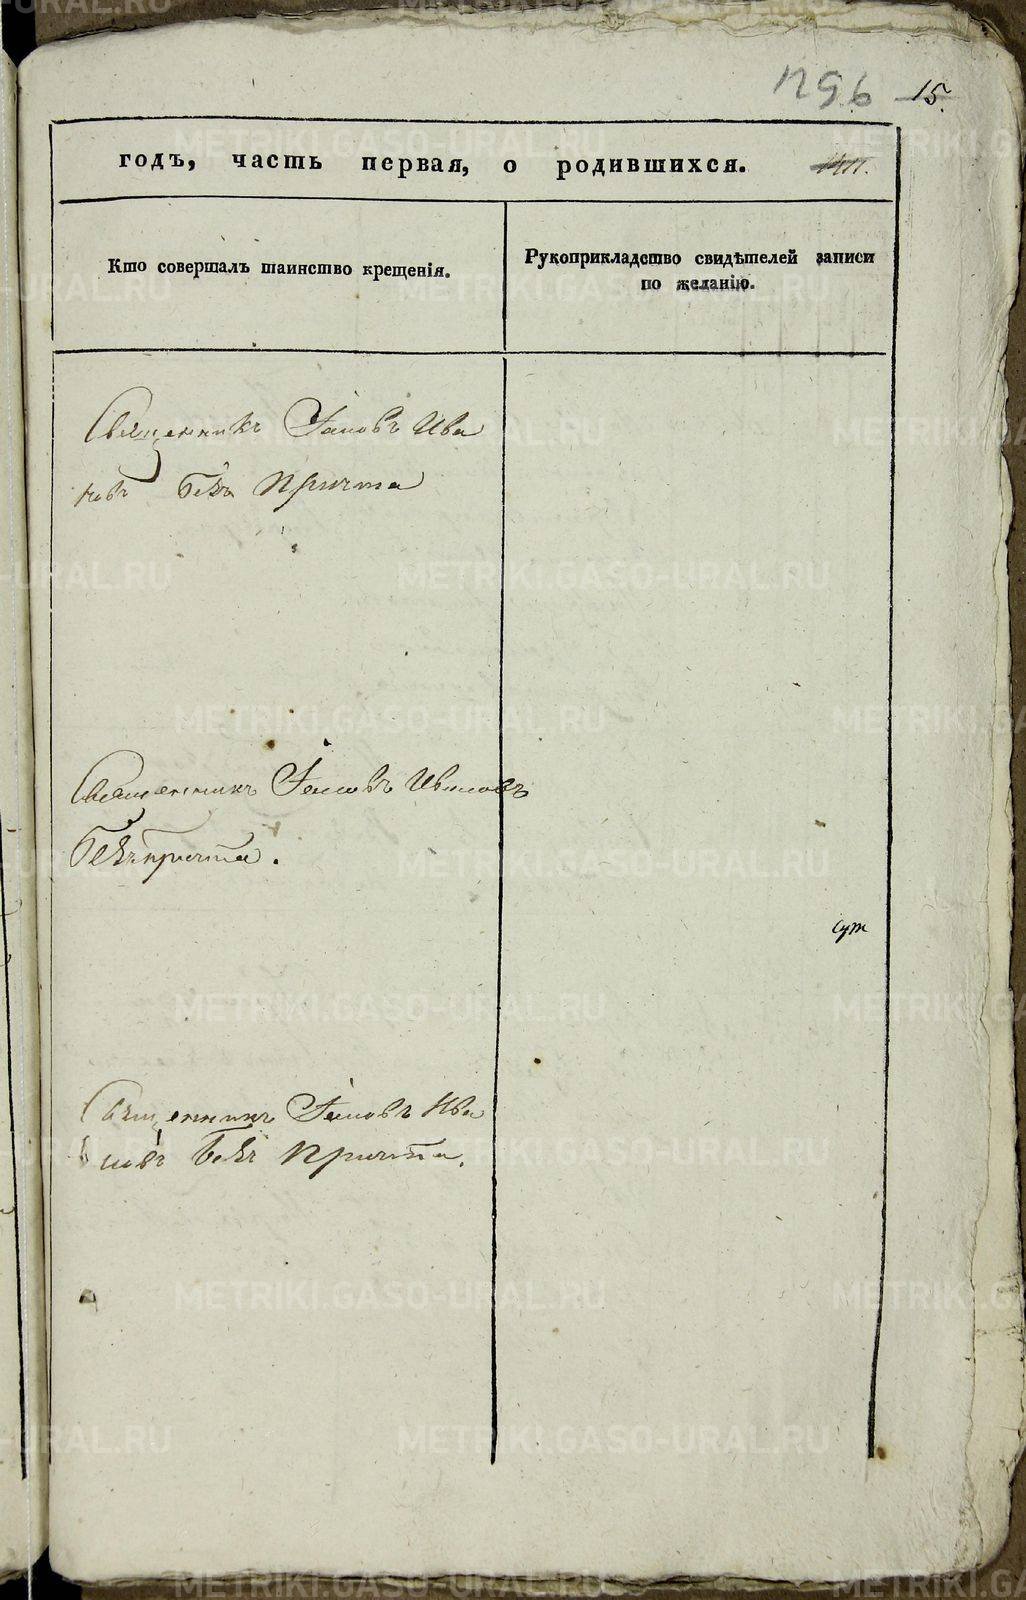 1296 15.
годъ, часть первая, о родившихся.
Кто совершалъ таинство крещенія.
Рукоприкладство свидѣтелей записи
по желанію.
Священникъ Іаковъ Ива
новъ безъ причта
Священникъ Іаковъ Ивановъ
безъ причта.
Священникъ Іаковъ Ива
новъ безъ причта.
METRIKI.GASO-URAL.RU